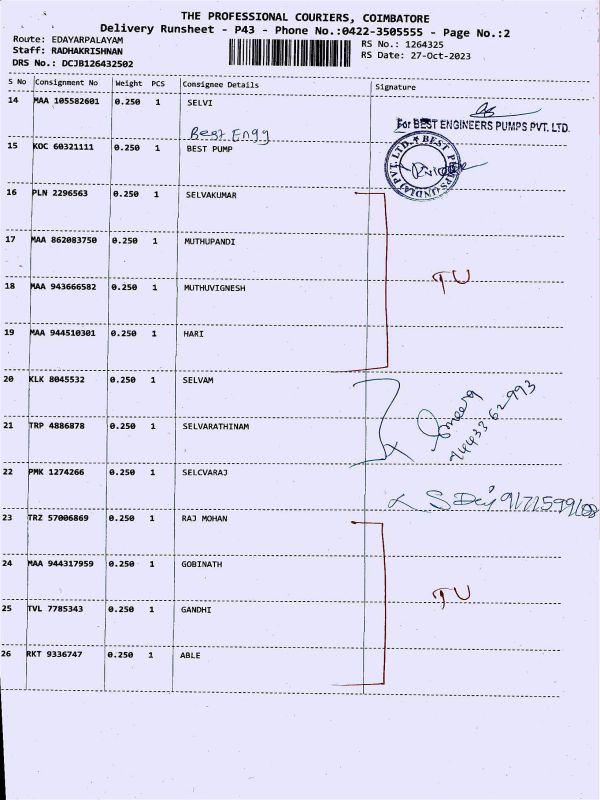 THE PROFESSIONAL COURIERS, COIMBATORE
Delivery Runsheet - P43 - Phone No.:0422-3505555 - Page No.:2
Route: EDAYARPALAYAM
RS No.: 1264325
Staff: RADHAKRISHNAN
RS Date: 27-Oct-2023
DRS No.: DCJB126432502
S No Consignment No Weight PCS Consignee Details Signature
14 MAA 105582601 0.250 1 SELVI
For BEST ENGINEERS PUMPS PVT. LTD.
Best Engg
15 KOC 60321111 0.250 1 BEST PUMP
16 PLN 2296563 0.250 1 SELVAKUMAR
17 MAA 862083750 0.250 1 MUTHUPANDI
TU
18 MAA 943666582 0.250 1 MUTHUVIGNESH
19 MAA 944510301 0.250 1 HARI
20 KLK 8045532 0.250 1 SELVAM
21 TRP 4886878 0.250 1 SELVARATHINAM
22 PMK 1274266 0.250 1 SELCVARAJ
23 TRZ 57006869 0.250 1 RAJ MOHAN
24 MAA 944317959 0.250 1 GOBINATH
TU
25 TVL 7785343 0.250 1 GANDHI
26 RKT 9336747 0.250 1 ABLE